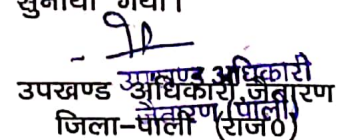 सुनाया गया।
उपखण्ड अधिकारी
उपखण्ड अधिकारी, जैतारण
जैतारण (पाली)
जिला-पाली (राज0)